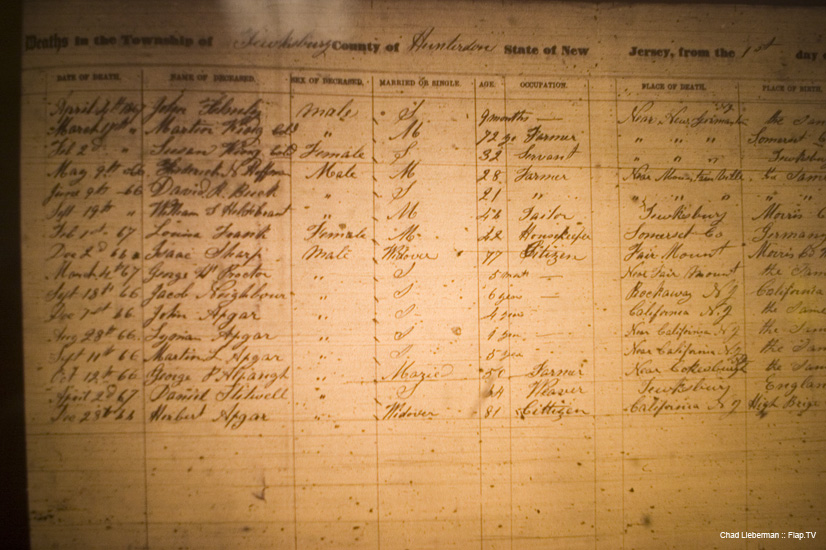 Deaths in the Township of Tewksbury County of Hunterdon State of New Jersey, from the 1st day
DATE OF DEATH. NAME OF DECEASED. SEX OF DECEASED. MARRIED OR SINGLE. AGE. OCCUPATION. PLACE OF DEATH. PLACE OF BIRTH.
April 4th 1867 John male S 9 months — Near New the
March " Martin King Cold " M 72 ye Farmer " " " Somerset
Feb 2d " Susan King Cold Female S 32 Servant " " " Tewksbury
May 9th 66 Frederick N Male M 28 Farmer Near
June 9th 66 David R. " S 21 " " " "
Sept 19th " William S " M Tailor Tewksbury Morris
Feb 1st 67 Louisa Female M 22 Housekeeper Somerset Co Germany
Dec 2d 66 Isaac Sharp Male Widover 77 Citizen Fair Mount Morris Co
March 4th 67 George W Rector " S 5 mots — Near Fair Mount the Same
Sept 18th 66 Jacob Neighbour " S 6 yea — Rockaway N J California
Dec 7st 66 John Apgar " S 4 yea California N.J the Same
Aug 28th 66 Lyman Apgar " S yea — Near California N J the Same
Sept 11th 66 Martin L Apgar " S 5 yea Near California N J the Same
Oct 12th 66 George P Alpaugh " Maried 50 Farmer Near the Same
April 2d 67 Daniel Stilwell " S 44 Weaver Tewksbury England
Dec 28th 66 Herbert Apgar " Widover 81 Cittizen California N J High
Chad Lieberman :: Flap.TV